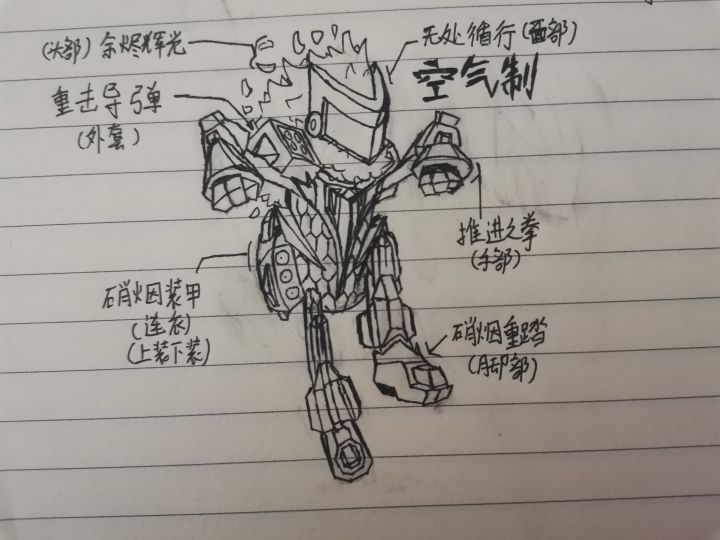 (头部)余烬辉光
无处循行(面部)
空气制
重击导弹
(外套)
推进之拳
(手部)
硝烟装甲
(连衣)
(上装下装)
硝烟重踏
(脚部)